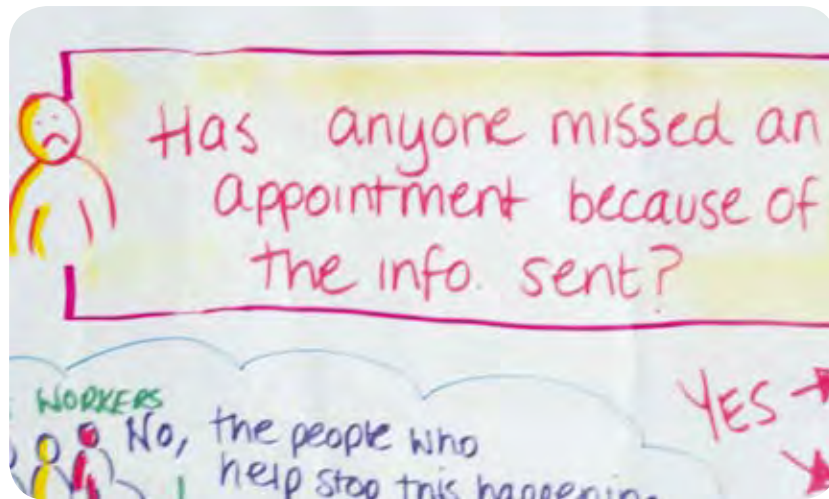 Has anyone missed an
appointment because of
the info. sent?
YES
WORKERS
No, the people who
help stop this happening